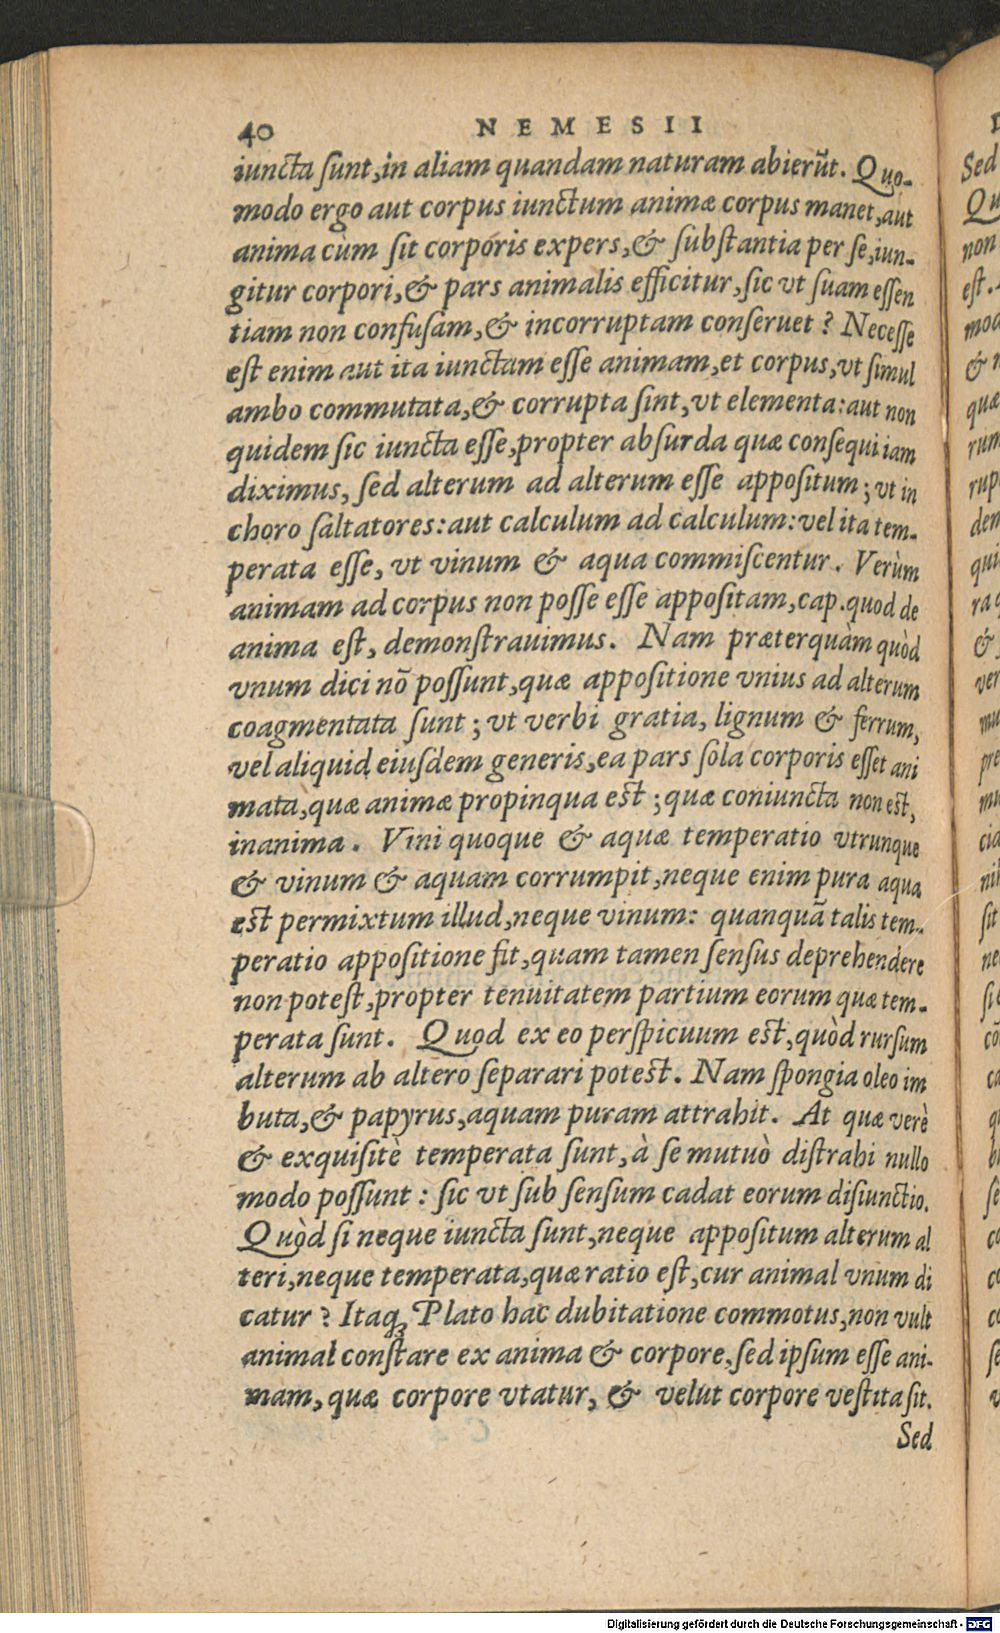 40 NEMESII
iuncta sunt, in aliam quandam naturam abierũt. Quo-
modo ergo aut corpus iunctum animæ corpus manet, aut
anima cùm sit corporis expers, & substantia per se, iun-
gitur corpori, & pars animalis efficitur, sic vt suam essen
tiam non confusam, & incorruptam conseruet? Necesse
est enim aut ita iunctam esse animam, et corpus, vt simul
ambo commutata, & corrupta sint, vt elementa: aut non
quidem sic iuncta esse, propter absurda quæ consequi iam
diximus, sed alterum ad alterum esse appositum; vt in
choro saltatores: aut calculum ad calculum: vel ita tem-
perata esse, vt vinum & aqua commiscentur. Verùm
animam ad corpus non posse esse appositam, cap. quod de
anima est, demonstrauimus. Nam præterquàm quòd
vnum dici nõ possunt, quæ appositione vnius ad alterum
coagmentata sunt; vt verbi gratia, lignum & ferrum,
vel aliquid eiusdem generis, ea pars sola corporis esset ani
mata, quæ animæ propinqua est; quæ coniuncta non est,
inanima. Vini quoque & aquæ temperatio vtrunque
& vinum & aquam corrumpit, neque enim pura aqua
est permixtum illud, neque vinum: quanquã talis tem-
peratio appositione fit, quam tamen sensus deprehendere
non potest, propter tenuitatem partium eorum quæ tem-
perata sunt. Quod ex eo perspicuum est, quòd rursum
alterum ab altero separari potest. Nam spongia oleo im
buta, & papyrus, aquam puram attrahit. At quæ verè
& exquisitè temperata sunt, à se mutuò distrahi nullo
modo possunt: sic vt sub sensum cadat eorum disiunctio.
Quòd si neque iuncta sunt, neque appositum alterum al
teri, neque temperata, quæ ratio est, cur animal vnum di
catur? Itaq; Plato hac dubitatione commotus, non vult
animal constare ex anima & corpore, sed ipsum esse ani-
mam, quæ corpore vtatur, & velut corpore vestita sit.
Sed
Digitalisierung gefördert durch die Deutsche Forschungsgemeinschaft - DFG